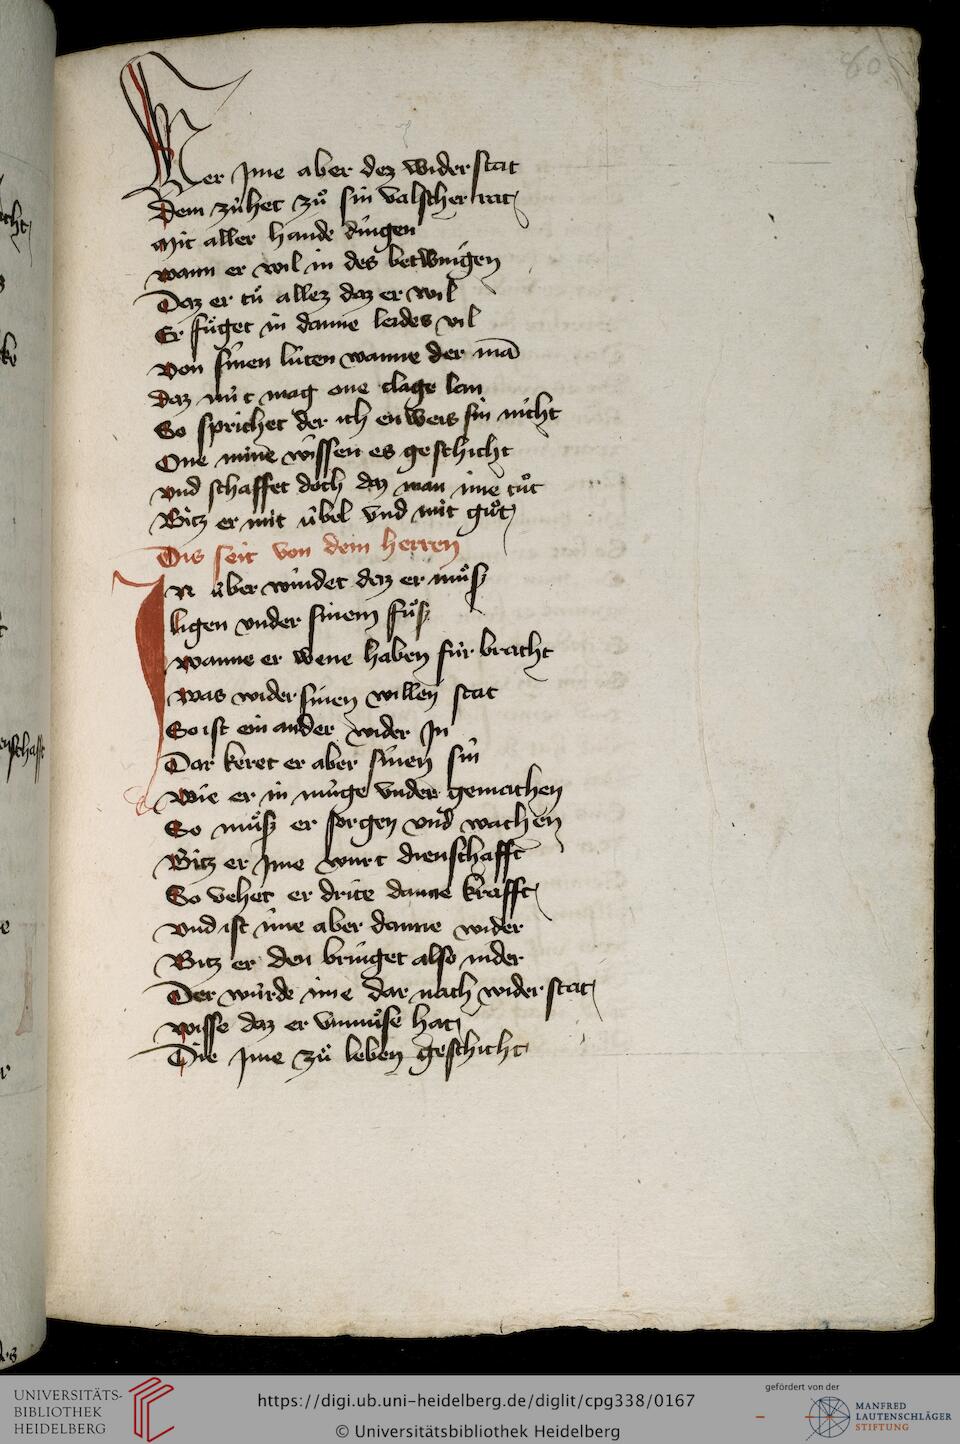 60
Wer jme aber dez wider stat
Dem zühet zuͦ sin valscher rat
Mit aller hande dingen
wann er wil in des betwingen
Daz er tuͦ allez daz er wil
Er fuͤget in danne leides vil
von sinen lüten wanne der mā
daz nüt mag one clage lan
So sprichet der ich enweis sin nicht
One mine wissen es geschicht
vnd schaffet doch daz man ime tuͦt
Bitz er mit übel vnd mit guͦt
Dis seit von dem herren
IR über windet daz er muͦß
ligen vnder sinem fuͦß
wanne er wene haben für bracht
was wider sinen willen stat
So ist ein ander wider In
Dar keret er aber sinen sin
wie er in müge vnder gemachen
So muͦß er sorgen vnd wachen
Bitz er jme wurt dienschafft
So vehet er drite danne krafft
vnd ist ime aber danne wider
Bitz er den bringet also nider
Der würde ime dar nach wider stat
wisse daz er vnmuͦse hat
Die jme zuͦ leben geschicht
UNIVERSITÄTS-
BIBLIOTHEK
HEIDELBERG
https://digi.ub.uni-heidelberg.de/diglit/cpg338/0167
© Universitätsbibliothek Heidelberg
gefördert von der
MANFRED
LAUTENSCHLÄGER
STIFTUNG